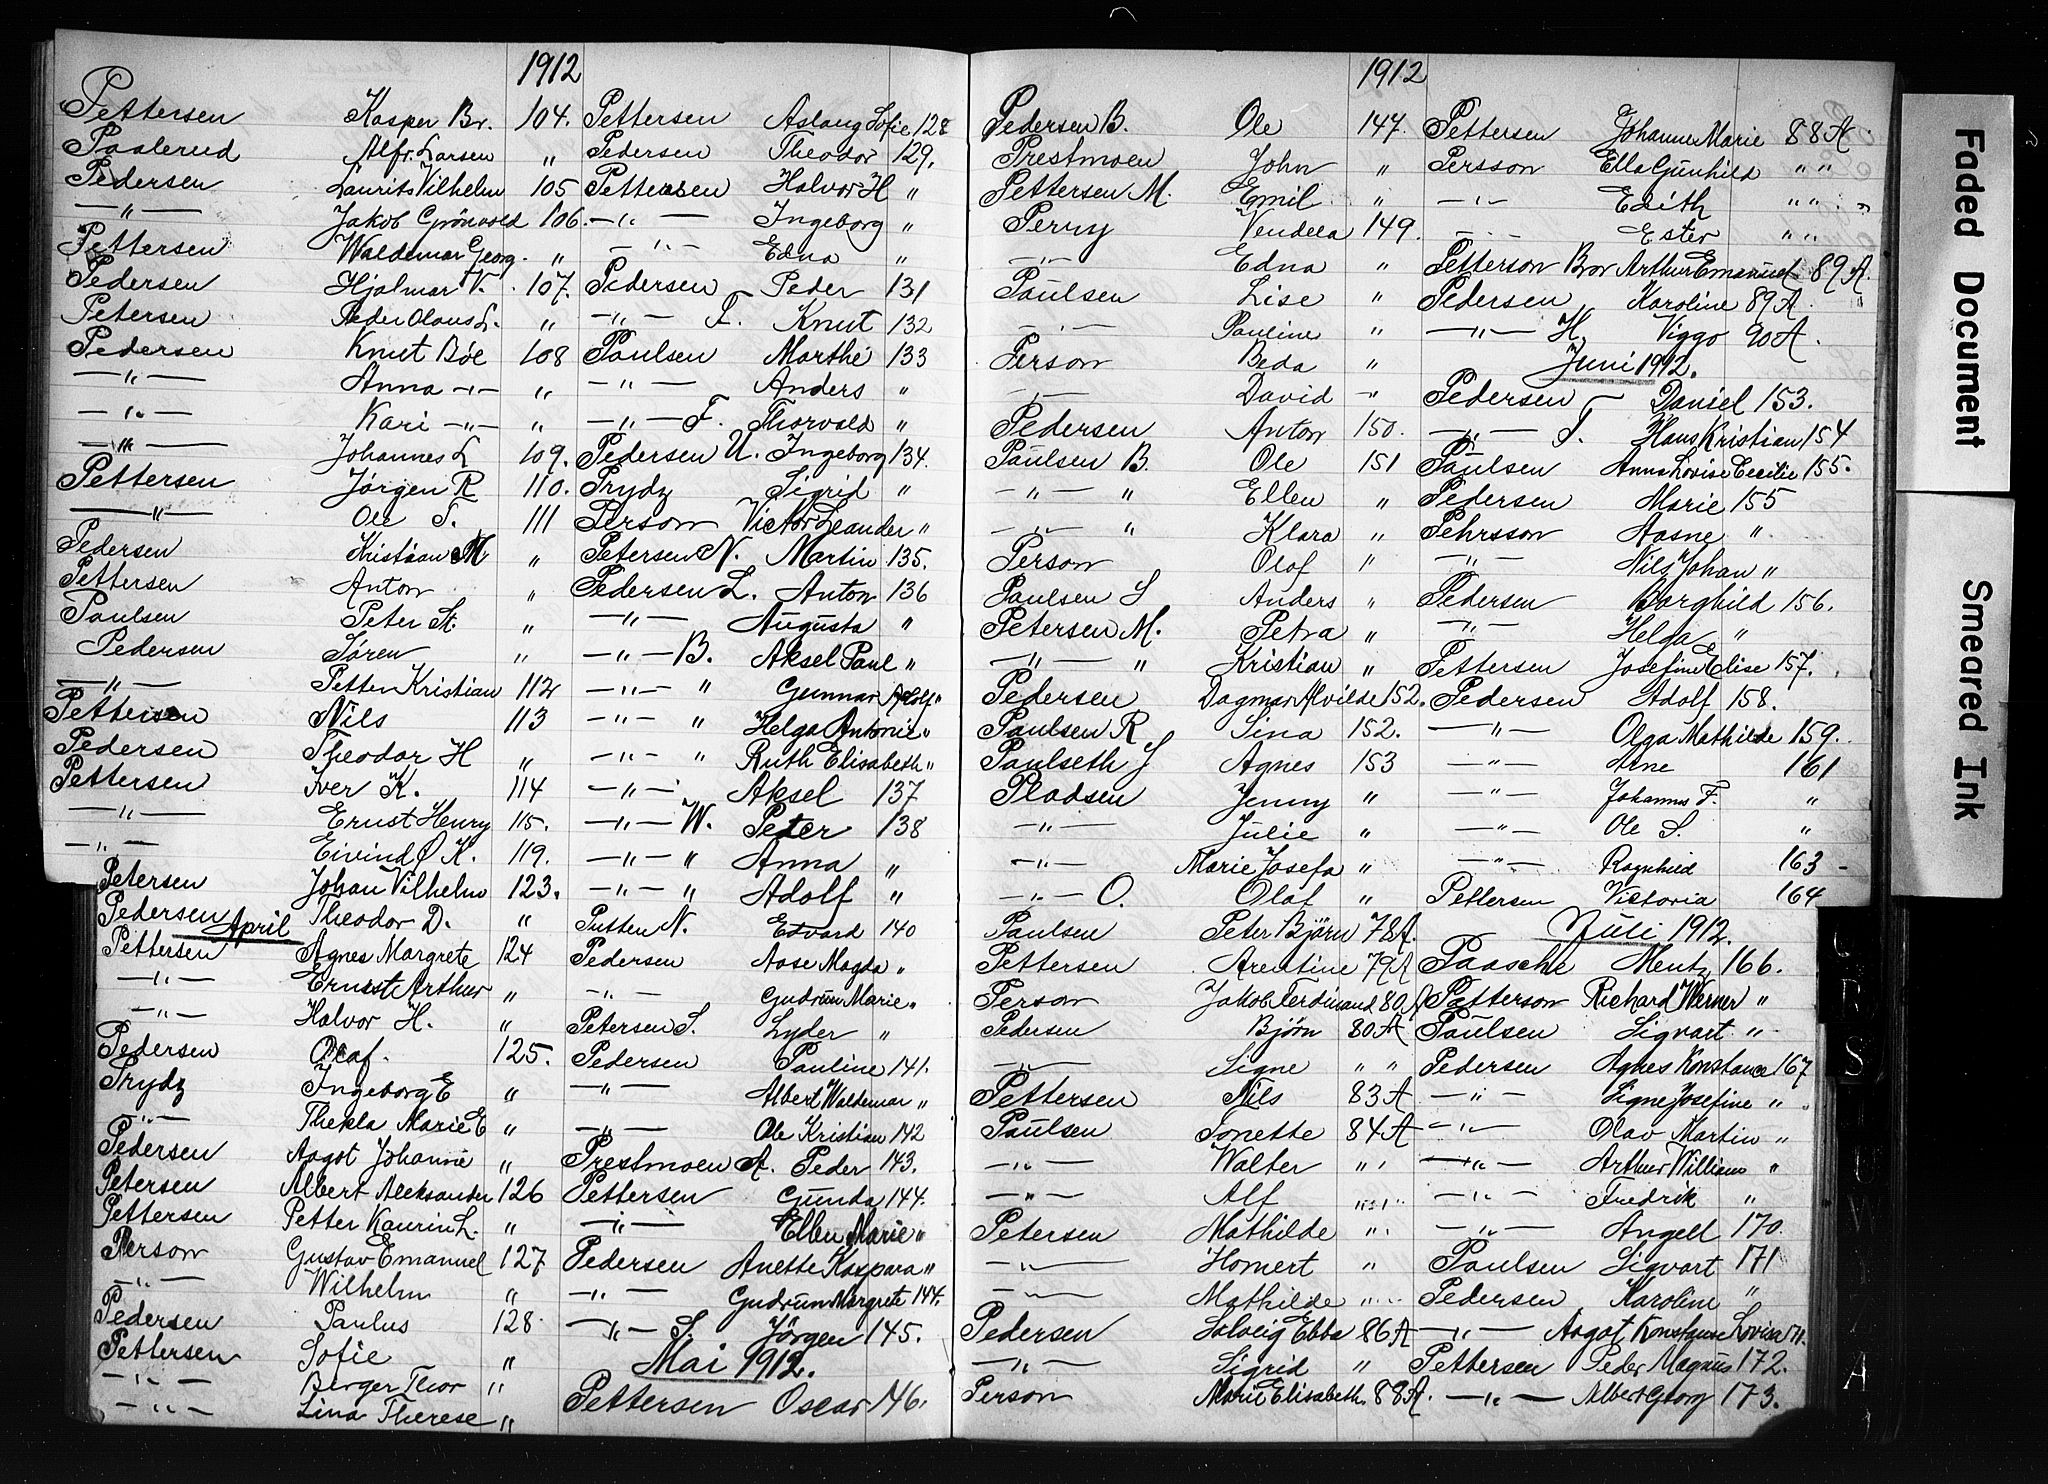 1912
Pettersen Kasper Br. 104.
Paalerud Alfr. Larsen "
Pedersen Laurits Vilhelm 105
—"— Jakob Grönvold 106.
Pettersen Waldemar Georg. "
Pedersen Hjalmar V. 107.
Petersen Peder Olaus L. "
Pedersen Knut Böe 108
—"— Anna —"— "
—"— Kari —"— "
—"— Johannes L 109.
Pettersen Jörgen R 110.
—"— Ole S. 111
Pedersen Kristian M "
Pettersen Anton "
Paulsen Peter St. "
Pedersen Sören "
—"— Petter Kristian 112
Pettersen Nils 113
Pedersen Theodor H "
Pettersen Iver K. 114
—"— Ernst Henry 115.
—"— Eivind Ø K. 119.
Petersen Johan Vilhelm 123.
Pedersen Theodor D. "
April
Pettersen Agnes Margrete 124
—"— Ernest Arthur "
—"— Halvor H. "
Pedersen Olaf. 125.
Prydz Ingeborg E "
—"— Thekla Marie E "
Pedersen Aagot Johanne "
Petersen Albert Aleksander 126
Pettersen Petter Kaurin L. "
Person Gustav Emanuel 127
—"— Wilhelm "
Pedersen Paulus 128
Pettersen Sofie "
—"— Berger Thor "
—"— Lina Therese "
Pettersen Aslaug Sofie 128
Pedersen Theodor 129.
Pettersen Halvor H "
—"— Ingeborg "
—"— Edna "
Pedersen Peder 131
—"— F. Knut 132
Paulsen Marthe 133
—"— Anders "
—"— F. Thorvald "
Pedersen U. Ingeborg 134.
Prydz Sigrid "
Person Victor Leander "
Petersen N. Martin 135.
Pedersen L. Anton 136
—"— Augusta "
—"— B. Aksel Paul "
—"— " Gunnar Adolf "
—"— " Helga Antonie "
—"— " Ruth Elisabeth "
—"— Aksel 137
—"— W. Peter 138
—"— " Anna "
—"— " Adolf "
Putten N. Edvard 140
Pedersen Aase Magda "
—"— Gudrun Marie "
Petersen S. Lyder "
Pedersen Pauline 141.
—"— Albert Waldemar "
—"— Ole Kristian 142
Prestmoen A. Peder 143.
Pettersen Gunda 144.
—"— Ellen Marie "
Pedersen Anette Kaspara "
—"— Gudrun Margrete 144.
—"— S. Jörgen 145.
Mai 1912.
Pettersen Oscar 146.
1912
Pedersen B. Ole 147.
Prestmoen John "
Pettersen M. Emil "
Perny Vendela 149.
—"— Edna "
Paulsen Lise "
—"— Pauline "
Person Beda "
—"— David "
Pedersen Anton 150.
Paulsen B. Ole 151
—"— " Ellen "
—"— " Klara "
Person Olof "
Paulsen S Anders "
Petersen M. Petra "
—"— " Kristian "
Pedersen Dagmar Alvilde 152.
Paulsen R Sina 152.
Paulseth J Agnes 153
Pladsen Jenny "
—"— Julie "
—"— Marie Josefa "
—"— O. Olaf "
Paulsen Peter Björn 78A.
Pettersen Arentine 79A
Person Jakob Ferdinand 80A
Pedersen Björn 80A
— Signe " "
Pettersen Nils 83A
Paulsen Tonette 84A
—"— Walter " "
—"— Alf " "
Petersen Mathilde " "
—"— Homert "
—"— Mathilde " "
Pedersen Solveig Ebba 86A
—"— Sigrid "
Person Marie Elisabeth 88A.
Pettersen Johanne Marie 88A
Persson Ella Gunhild " "
—"— Edith " "
—"— Ester " "
Petterson Bror Arthur Emanuel 89A.
Pedersen Karoline 89A.
—"— H. Viggo 90A.
Juni 1912.
Pedersen Daniel 153.
—"— F. Hans Kristian 154
Paulsen Anna Lovise Cecilie 155.
Pedersen Marie 155
Pehrsson Aasne "
—"— Nils Johan "
Pedersen Borghild 156.
—"— Helga "
Pettersen Josefine Elise 157.
Pedersen Adolf 158.
—"— Olga Mathilde 159.
—"— Arne 161
—"— Johannes F. "
—"— Ole S. "
—"— Ragnhild 163
Pettersen Victoria 164
Juli 1912.
Paasche Mentz 166.
Patterson Richard Werner "
Paulsen Sigvart "
Pedersen Agnes Konstance 167
—"— Signe Josefine "
—"— Olav Martin "
—"— Arthur William "
—"— Fredrik "
—"— Angell 170.
Paulsen Sigvart 171
Pedersen Karoline "
—"— Aagot Konstanse Lovisa 171.
Pettersen Peder Magnus 172.
—"— Albert Georg 173.
Faded Document
Smeared Ink